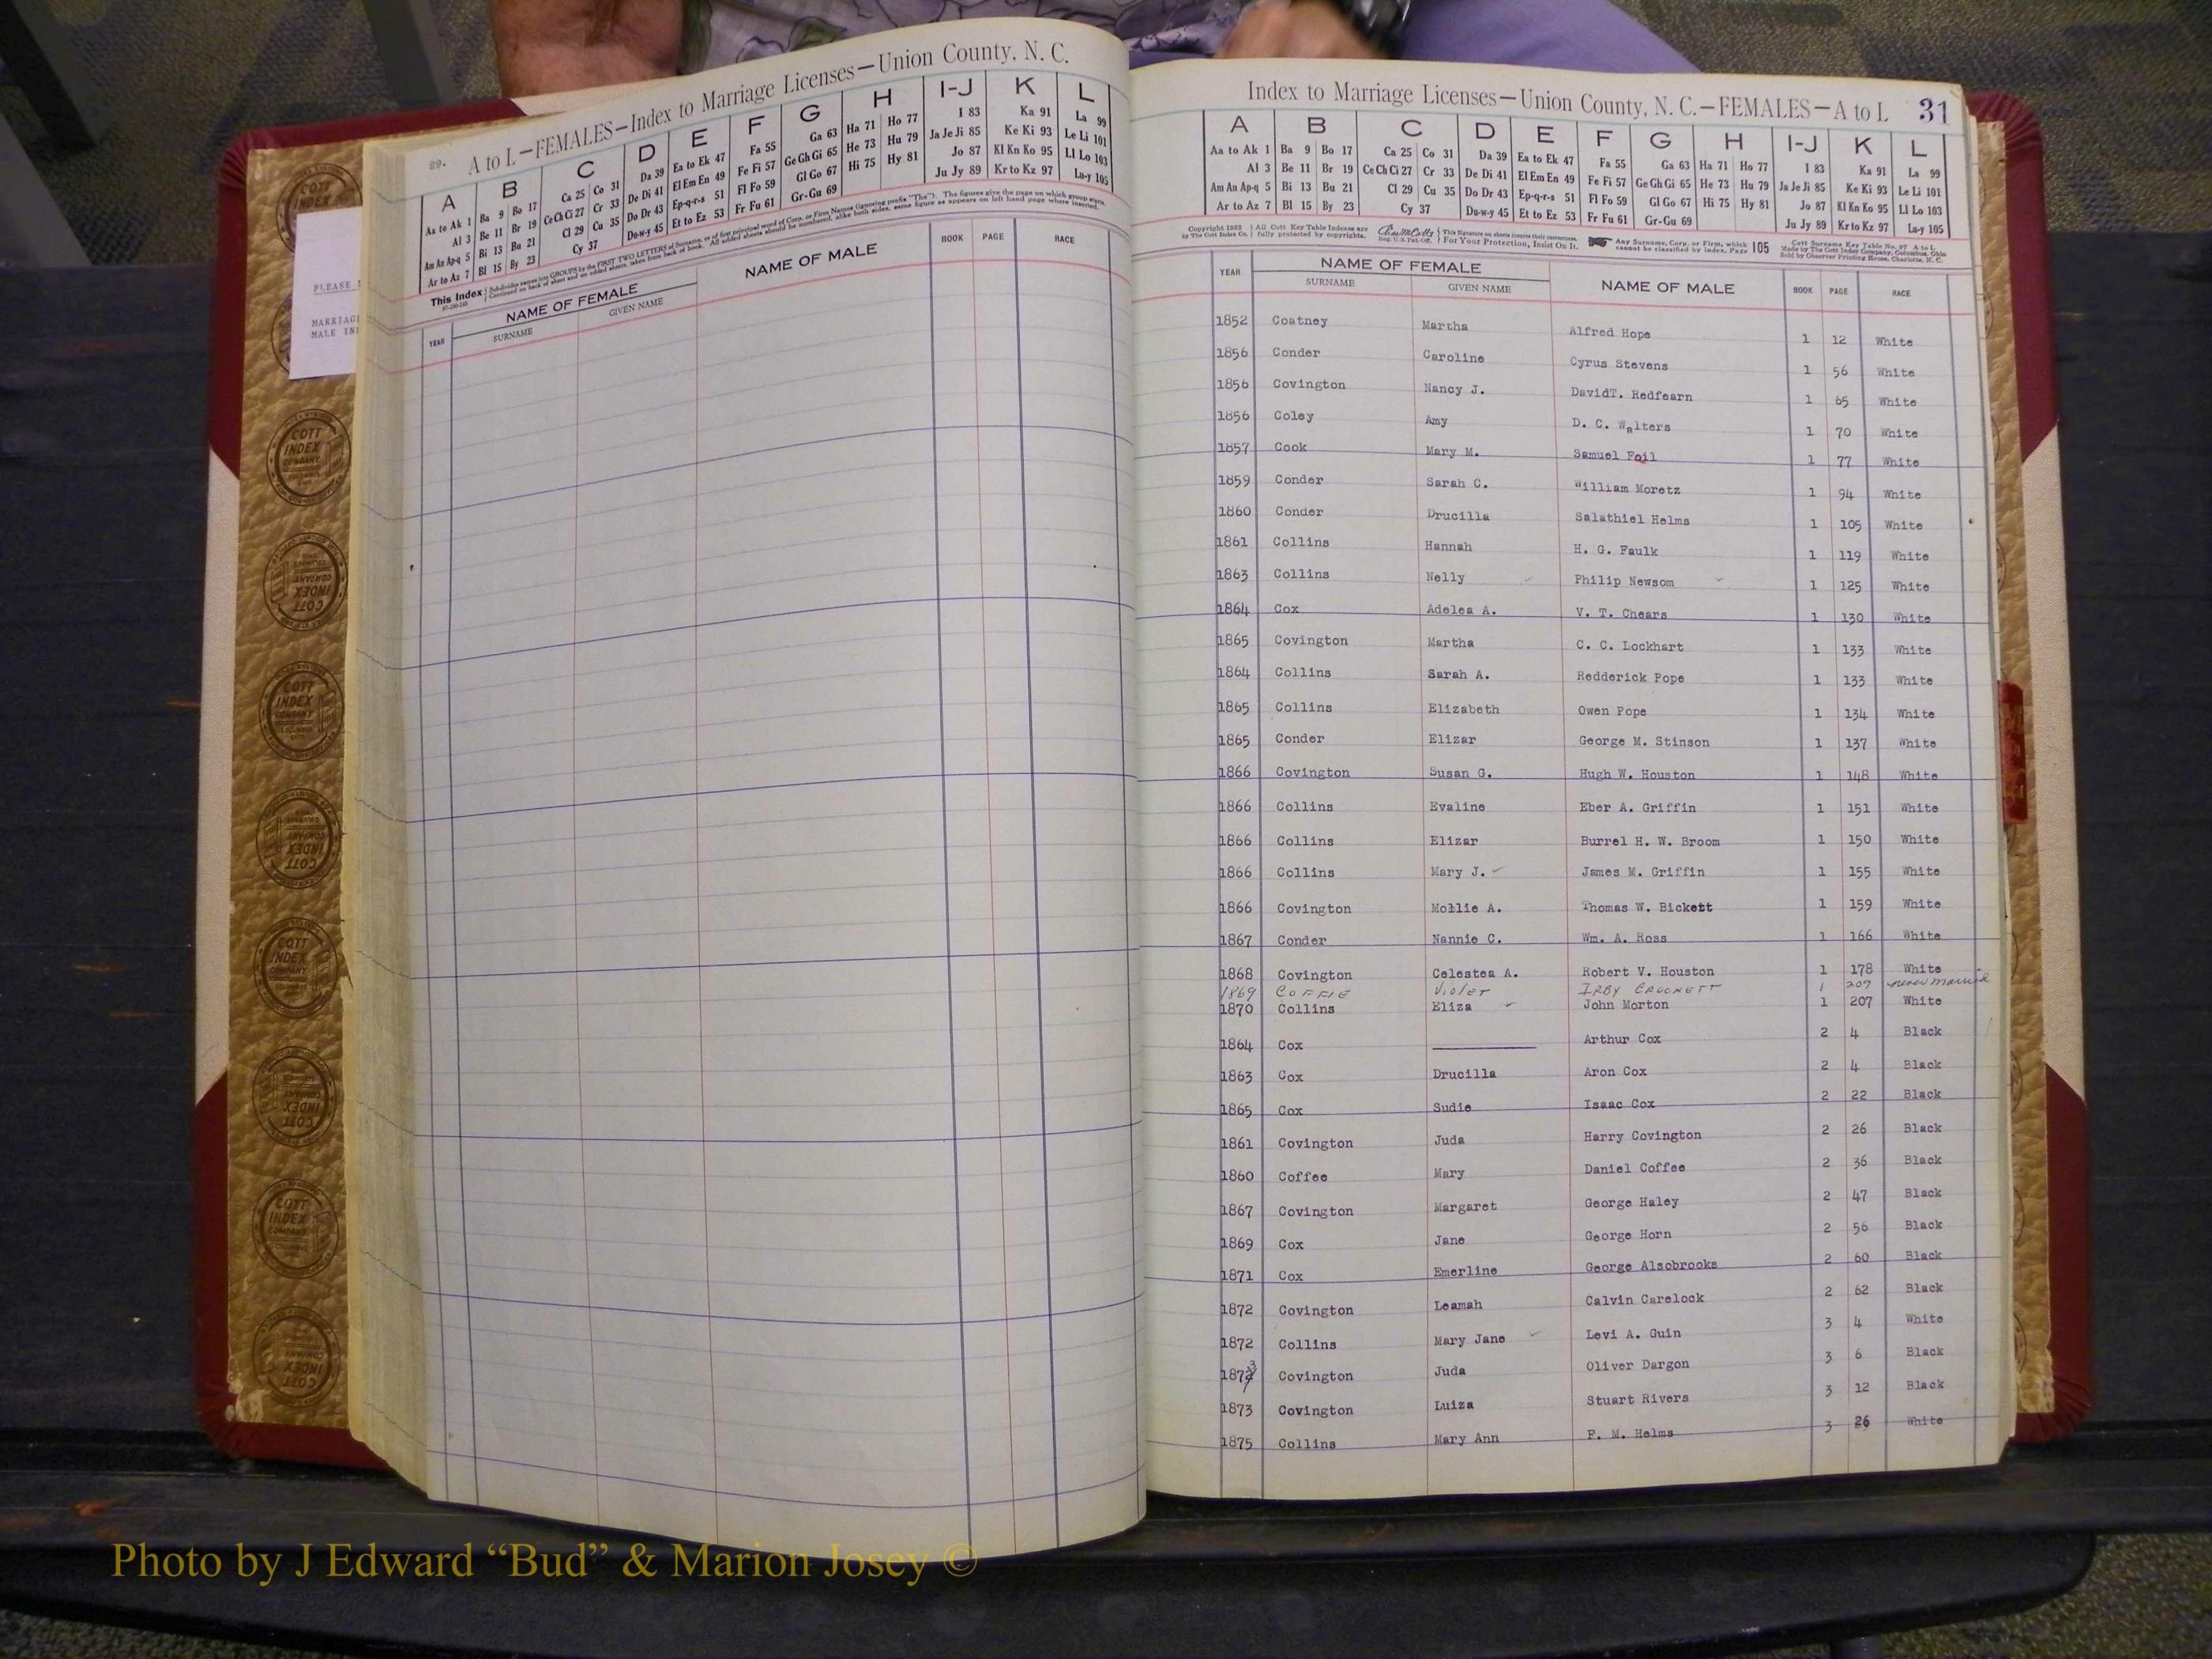 29.
A to L—FEMALES—Index to Marriage Licenses—Union County, N. C.
A B C D E F G H I-J K L
Aa to Ak 1 Ba 9 Bo 17 Ca 25 Co 31 Da 39 Ea to Ek 47 Fa 55 Ga 63 Ha 71 Ho 77 I 83 Ka 91 La 99
Al 3 Be 11 Br 19 Ce Ch Ci 27 Cr 33 De Di 41 El Em En 49 Fe Fi 57 Ge Gh Gi 65 He 73 Hu 79 Ja Je Ji 85 Ke Ki 93 Le Li 101
Am An Ap-q 5 Bi 13 Bu 21 Cl 29 Cu 35 Do Dr 43 Ep-q-r-s 51 Fl Fo 59 Gl Go 67 Hi 75 Hy 81 Jo 87 Kl Kn Ko 95 Ll Lo 103
Ar to Az 7 Bl 15 By 23 Cy 37 Du-w-y 45 Et to Ez 53 Fr Fu 61 Gr-Gu 69 Ju Jy 89 Kr to Kz 97 Lu-y 105
This Index
YEAR NAME OF FEMALE NAME OF MALE BOOK PAGE RACE
SURNAME GIVEN NAME
PLEASE
MARRIAG
MALE IN
COTT INDEX COMPANY
Index to Marriage Licenses—Union County, N. C.—FEMALES—A to L 31
A B C D E F G H I-J K L
Aa to Ak 1 Ba 9 Bo 17 Ca 25 Co 31 Da 39 Ea to Ek 47 Fa 55 Ga 63 Ha 71 Ho 77 I 83 Ka 91 La 99
Al 3 Be 11 Br 19 Ce Ch Ci 27 Cr 33 De Di 41 El Em En 49 Fe Fi 57 Ge Gh Gi 65 He 73 Hu 79 Ja Je Ji 85 Ke Ki 93 Le Li 101
Am An Ap-q 5 Bi 13 Bu 21 Cl 29 Cu 35 Do Dr 43 Ep-q-r-s 51 Fl Fo 59 Gl Go 67 Hi 75 Hy 81 Jo 87 Kl Kn Ko 95 Ll Lo 103
Ar to Az 7 Bl 15 By 23 Cy 37 Du-w-y 45 Et to Ez 53 Fr Fu 61 Gr-Gu 69 Ju Jy 89 Kr to Kz 97 Lu-y 105
All Cott Key Table Indexes are fully protected by copyrights. For Your Protection, Insist On It. Any Surname, Corp. or Firm, which cannot be classified by index, Page 105
YEAR NAME OF FEMALE NAME OF MALE BOOK PAGE RACE
SURNAME GIVEN NAME
1852 Coatney Martha Alfred Hope 1 12 White
1856 Conder Caroline Cyrus Stevens 1 56 White
1856 Covington Nancy J. DavidT. Redfearn 1 65 White
1856 Coley Amy D. C. Walters 1 70 White
1857 Cook Mary M. Samuel Foil 1 77 White
1859 Conder Sarah C. William Moretz 1 94 White
1860 Conder Drucilla Salathiel Helms 1 105 White
1861 Collins Hannah H. G. Faulk 1 119 White
1863 Collins Nelly Philip Newsom 1 125 White
1864 Cox Adelea A. V. T. Chears 1 130 White
1865 Covington Martha C. C. Lockhart 1 133 White
1864 Collins Sarah A. Redderick Pope 1 133 White
1865 Collins Elizabeth Owen Pope 1 134 White
1865 Conder Elizar George M. Stinson 1 137 White
1866 Covington Susan G. Hugh W. Houston 1 148 White
1866 Collins Evaline Eber A. Griffin 1 151 White
1866 Collins Elizar Burrel H. W. Broom 1 150 White
1866 Collins Mary J. James M. Griffin 1 155 White
1866 Covington Mollie A. Thomas W. Bickett 1 159 White
1867 Conder Nannie C. Wm. A. Ross 1 166 White
1868 Covington Celestea A. Robert V. Houston 1 178 White
1869 COFFIE Violet IRBY CROCKETT 1 207 never married
1870 Collins Eliza John Morton 1 207 White
1864 Cox Arthur Cox 2 4 Black
1863 Cox Drucilla Aron Cox 2 4 Black
1865 Cox Sudie Isaac Cox 2 22 Black
1861 Covington Juda Harry Covington 2 26 Black
1860 Coffee Mary Daniel Coffee 2 36 Black
1867 Covington Margaret George Haley 2 47 Black
1869 Cox Jane George Horn 2 56 Black
1871 Cox Emerline George Alsobrooks 2 60 Black
1872 Covington Leamah Calvin Carelock 2 62 Black
1872 Collins Mary Jane Levi A. Guin 3 4 White
1873 Covington Juda Oliver Dargon 3 6 Black
1873 Covington Luiza Stuart Rivers 3 12 Black
1875 Collins Mary Ann F. M. Helms 3 26 White
Photo by J Edward “Bud” & Marion Josey ©